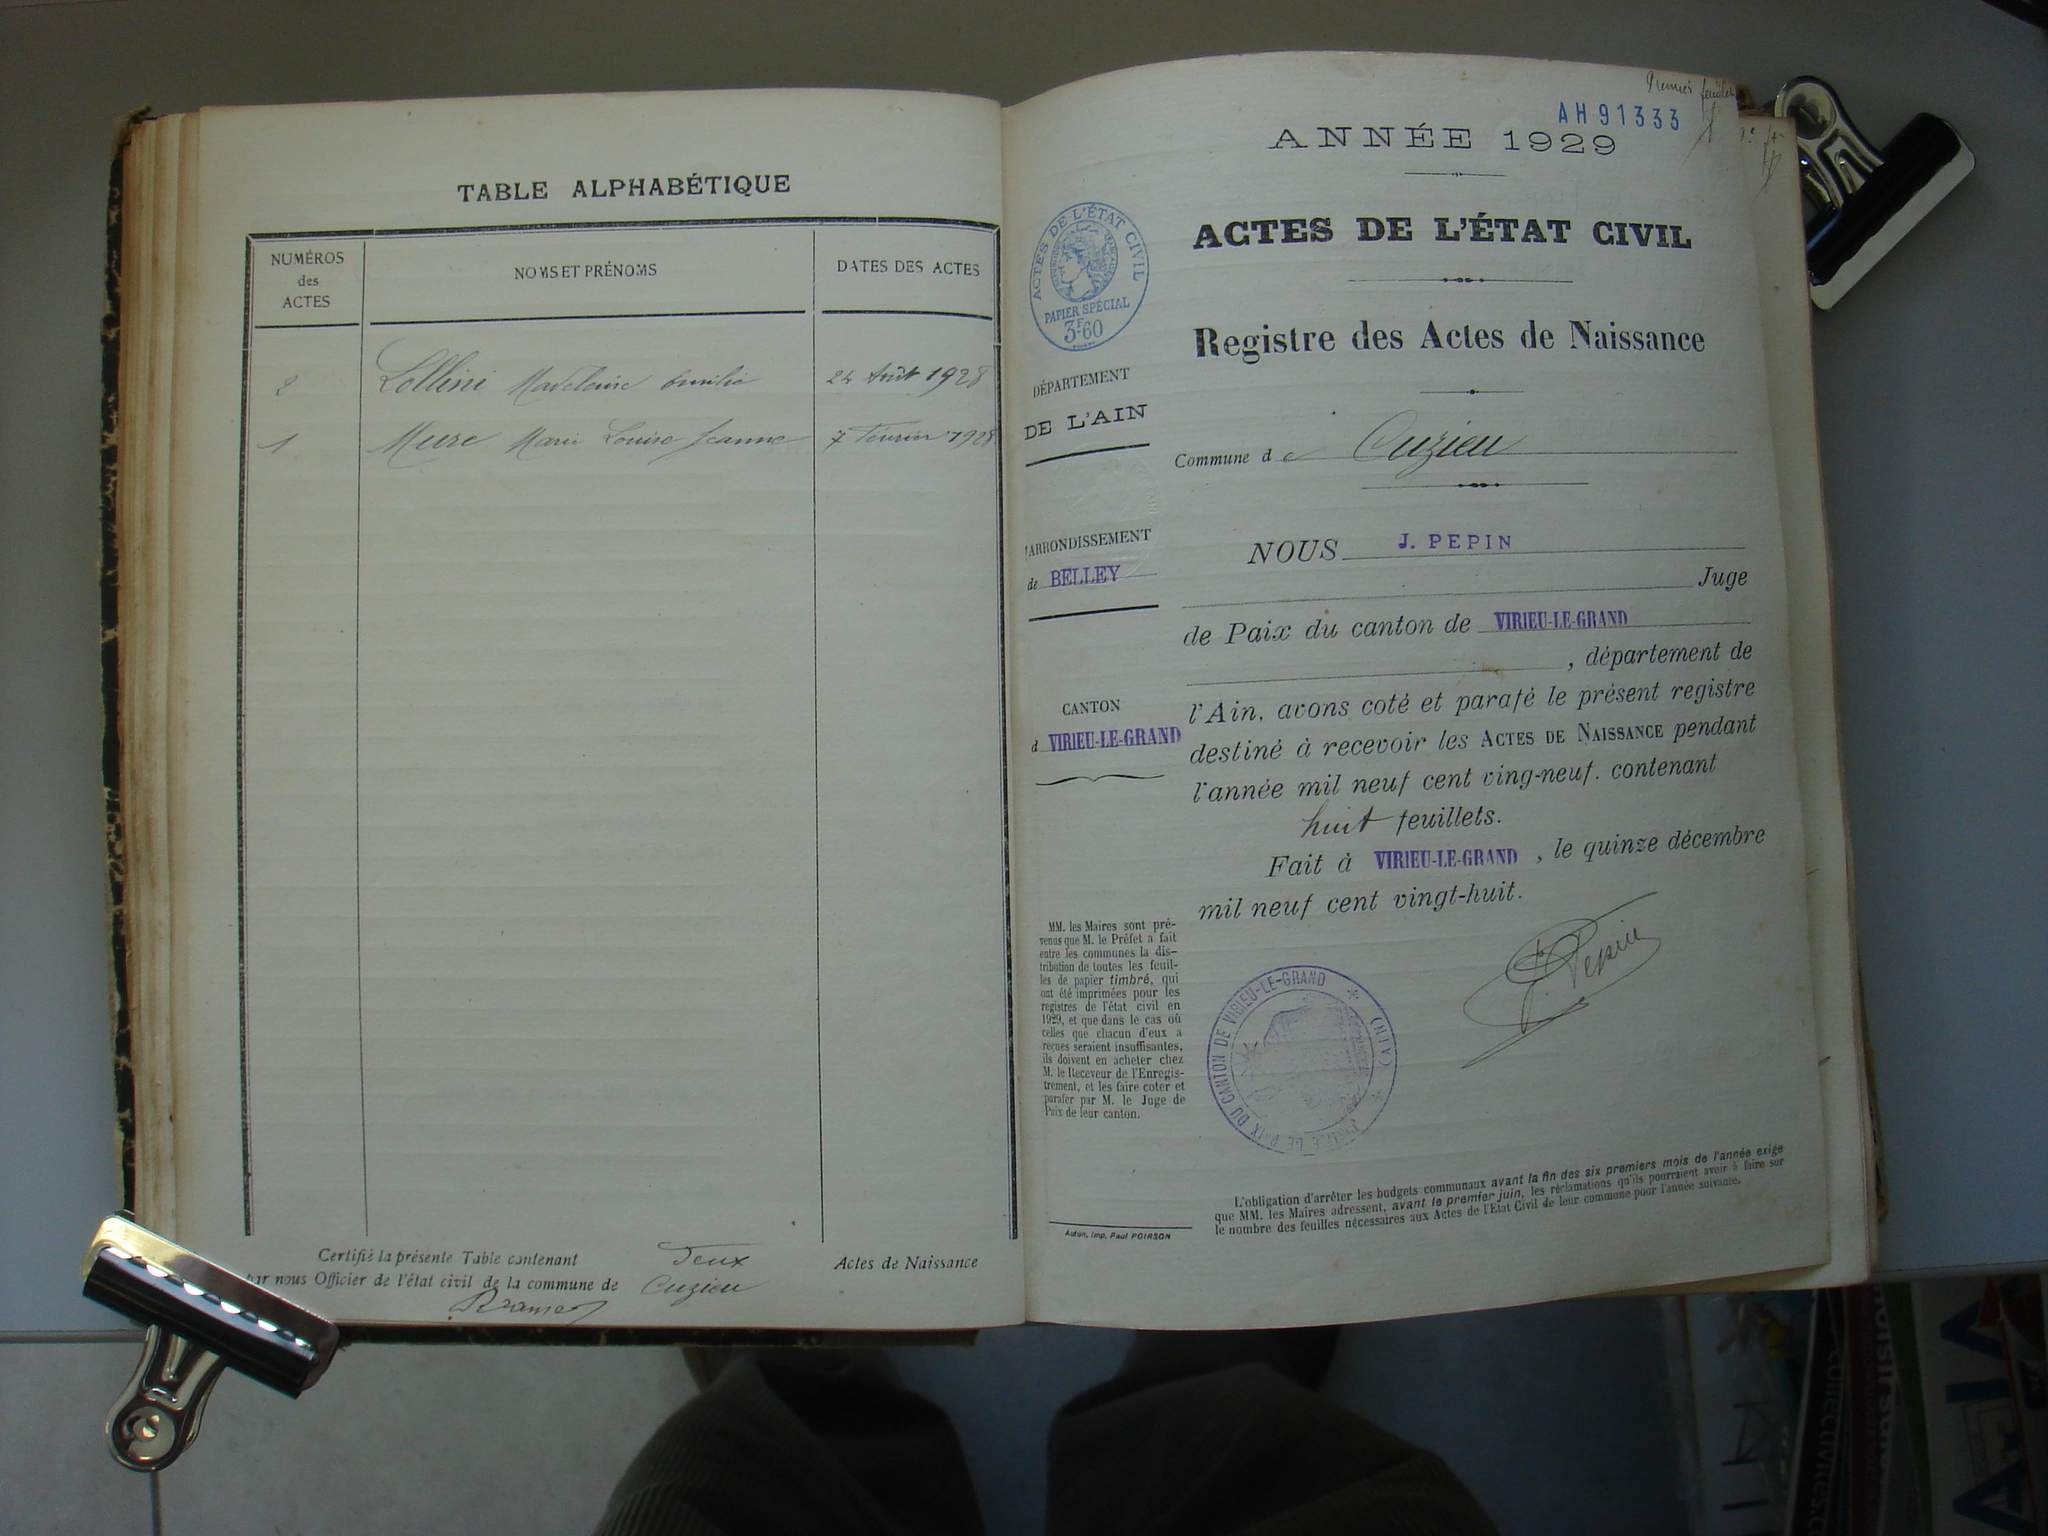 TABLE ALPHABÉTIQUE
NUMÉROS
des
ACTES
NOMS ET PRÉNOMS
DATES DES ACTES
2 Lollini Madeleine Emilie 24 Août 1928
1 Mure Marie Louise Jeanne 7 Février 1928
Certifié la présente Table contenant Deux Actes de Naissance
par nous Officier de l'état civil de la commune de Cuzieu
Premier feuillet
AH91333
ANNÉE 1929
ACTES DE L'ÉTAT CIVIL
PAPIER SPÉCIAL
3F60
ACTES DE L'ÉTAT CIVIL
Registre des Actes de Naissance
DÉPARTEMENT
DE L'AIN
Commune de Cuzieu
ARRONDISSEMENT
de BELLEY
CANTON
d VIRIEU-LE-GRAND
NOUS J. PEPIN
Juge
de Paix du canton de VIRIEU-LE-GRAND
, département de
l'Ain, avons coté et parafé le présent registre
destiné à recevoir les ACTES DE NAISSANCE pendant
l'année mil neuf cent ving-neuf. contenant
huit feuillets.
Fait à VIRIEU-LE-GRAND, le quinze décembre
mil neuf cent vingt-huit.
J. Pepin
MM. les Maires sont pré-
venus que M. le Préfet a fait
entre les communes la dis-
tribution de toutes les feuil-
les de papier timbré, qui
ont été imprimées pour les
registres de l'état civil en
1929, et que dans le cas où
celles que chacun d'eux a
reçues seraient insuffisantes,
ils doivent en acheter chez
M. le Receveur de l'Enregis-
trement, et les faire coter et
parafer par M. le Juge de
Paix de leur canton.
JUSTICE DE PAIX DU CANTON DE VIRIEU-LE-GRAND * (AIN) *
L'obligation d'arrêter les budgets communaux avant la fin des six premiers mois de l'année exige
que MM. les Maires adressent, avant le premier juin, les réclamations qu'ils pourraient avoir à faire sur
le nombre des feuilles nécessaires aux Actes de l'Etat Civil de leur commune pour l'année suivante.
Autun, Imp. Paul POIRSON